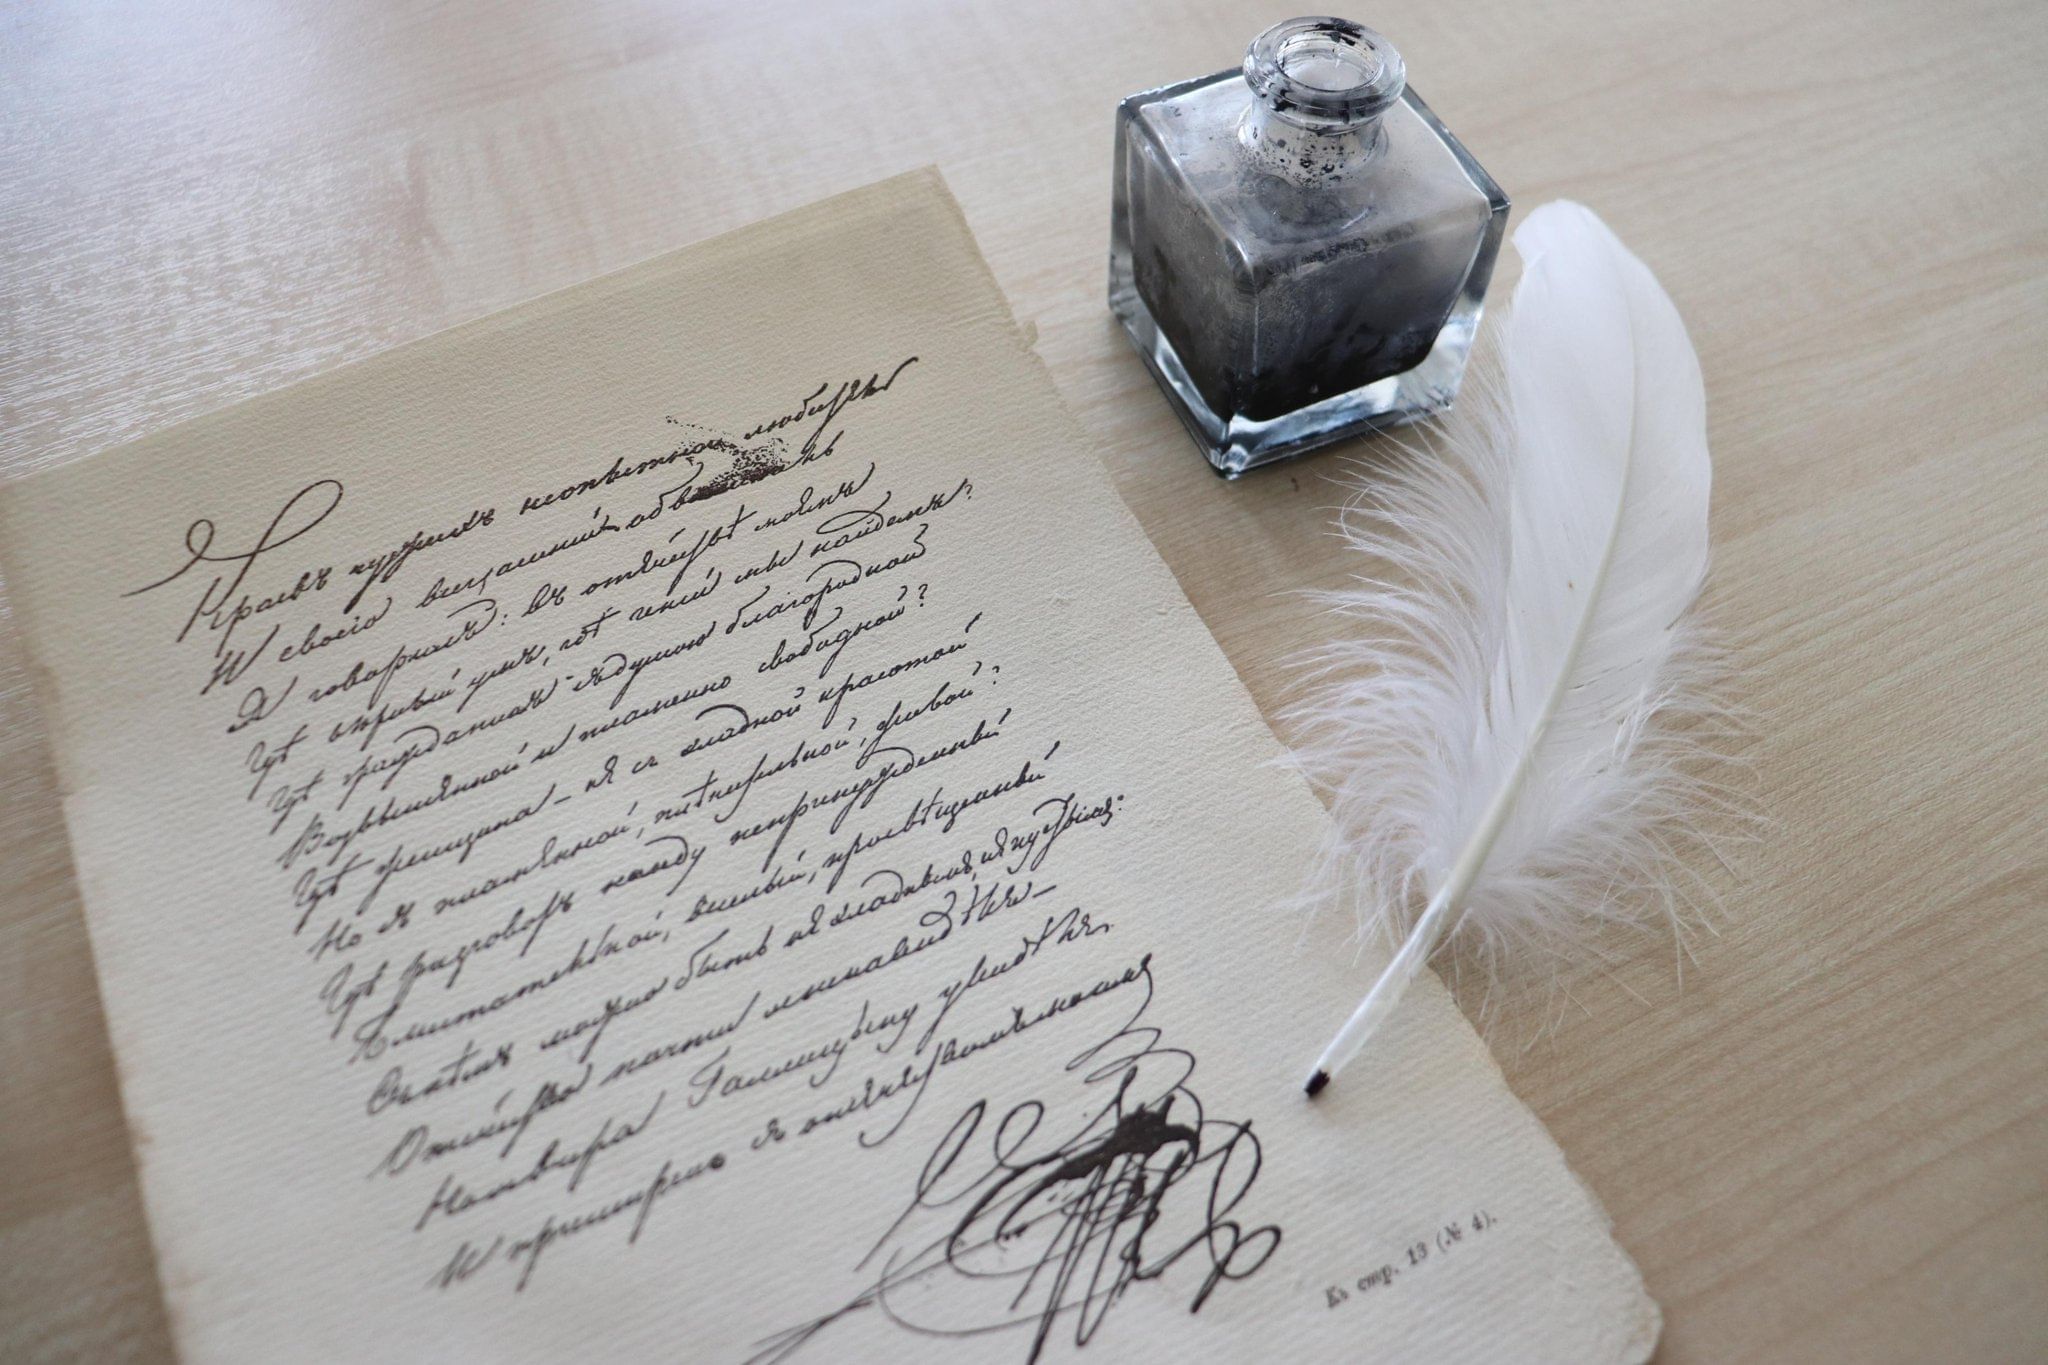 Краевъ чужихъ неопытной любитель
И своего всегдашній обвинитель
Я говорилъ: въ отечествѣ моемъ
Гдѣ вѣрный умъ, гдѣ геній мы найдемъ?
Гдѣ гражданинъ съ душою благородной
Возвышенной и пламенно свободной?
Гдѣ женщина — не съ хладной красотой
Но съ пламенной, плѣнительной, живой?
Гдѣ разговоръ найду непринужденный
Блистательной, веселый, просвѣщенный
Съ кѣмъ можно быть не хладнымъ, не пустымъ:
Отечество почти я ненавидѣлъ —
Но я вчера Голицыну увидѣлъ
И примиренъ съ отечествомъ моимъ
Къ стр. 13 (№ 4).